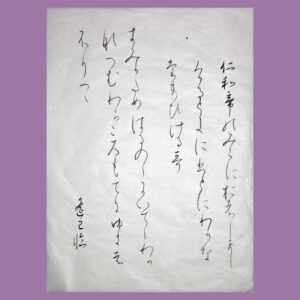 仁和帝のみこにおましまし
けるときにひとにわかな
たまひける哥
きみかためはるのゝにいてゝわか
なつむわかころもてにゆきは
ふりつゝ
臨